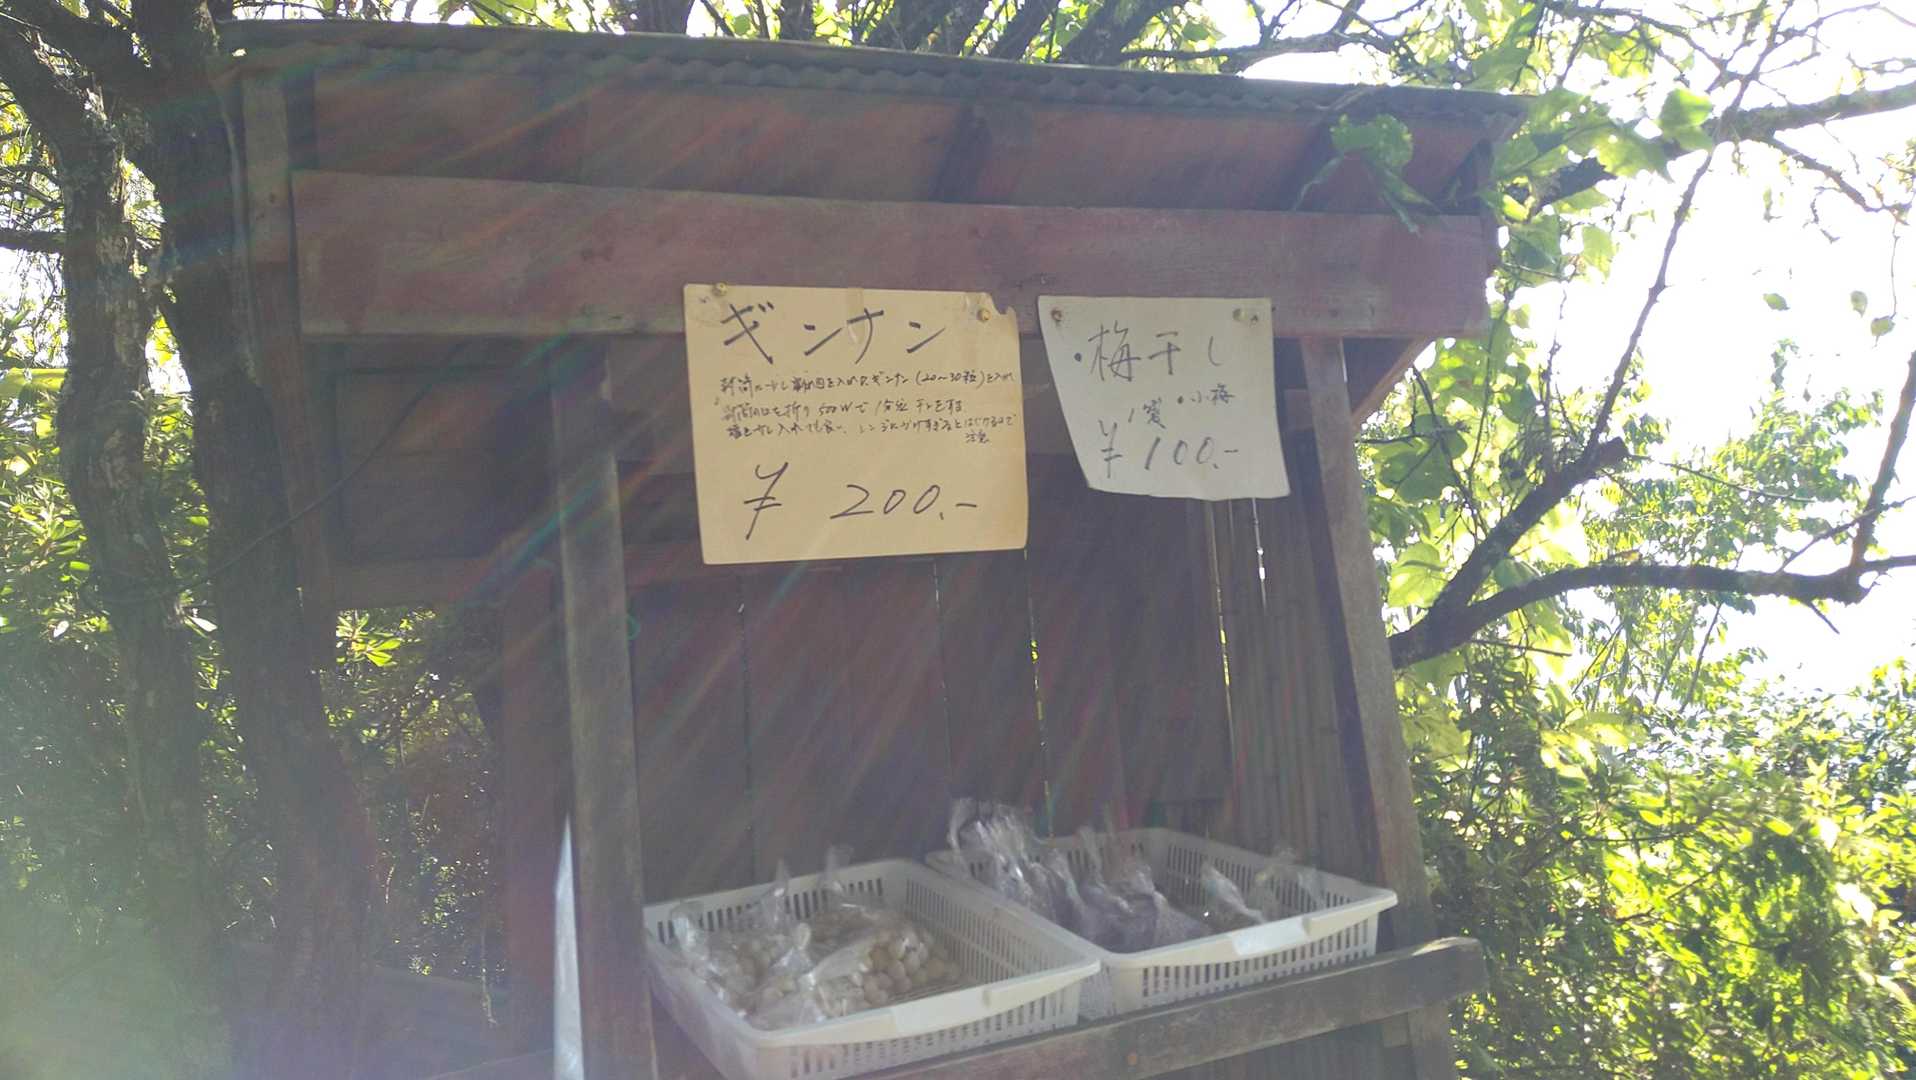 ギンナン
封筒に少し割れ目を入れたギンナン(20〜30粒)を入れ
封筒の口を折り500Wで1分位チンをする。
塩を少し入れても良い、レンジにかけすぎるとはじけるので
注意
¥ 200.-
・梅干し
・小梅
1袋
¥100.-